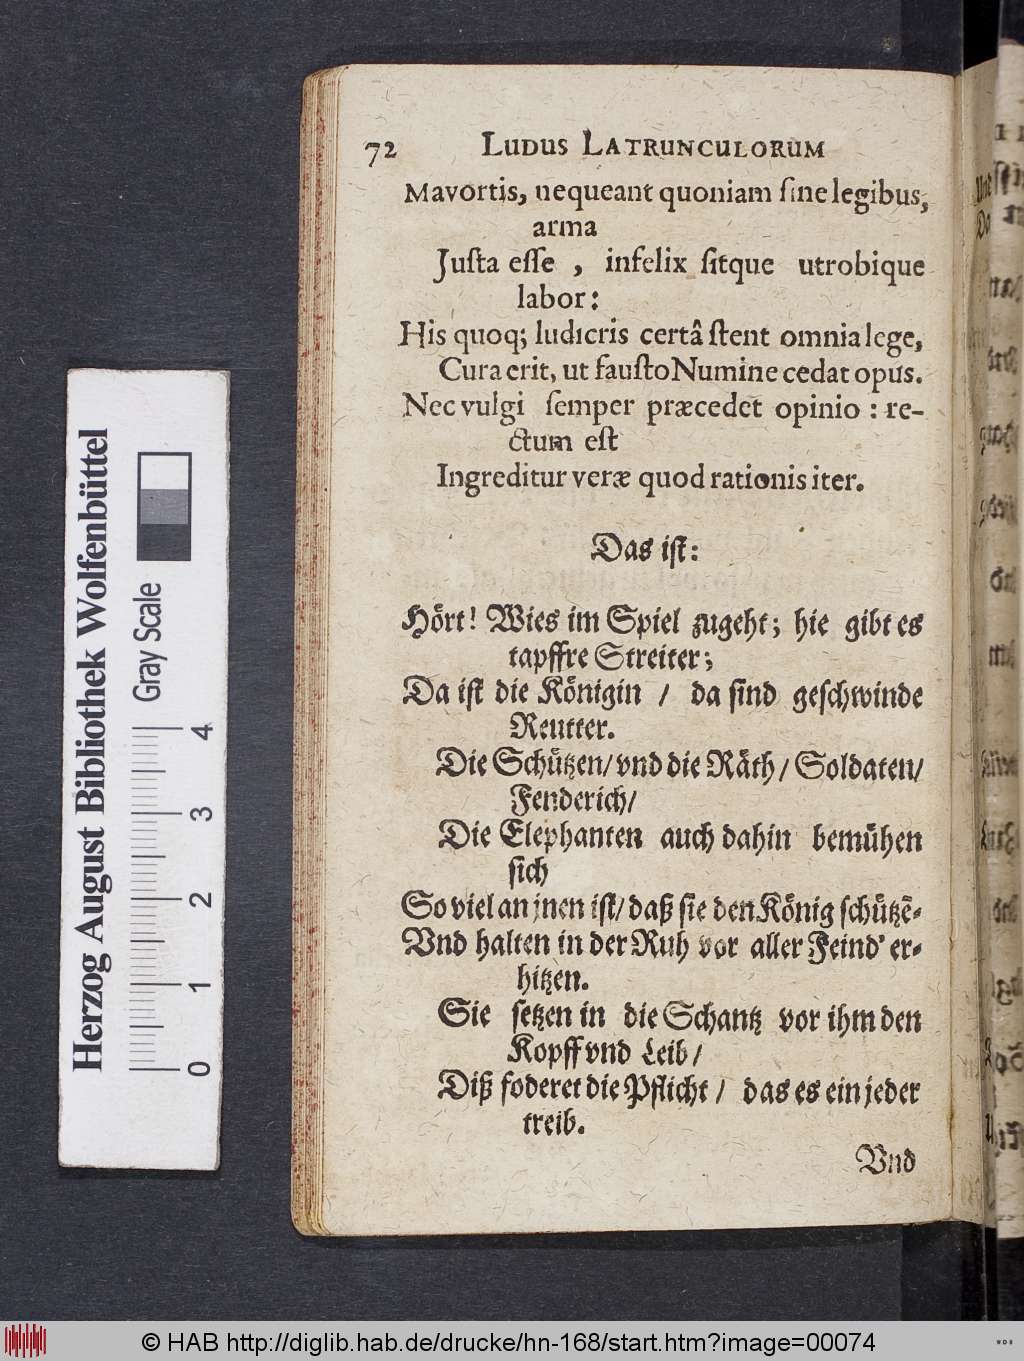 72 LUDUS LATRUNCULORUM
Mavortis, nequeant quoniam ſine legibus,
arma
Juſta eſſe , infelix ſitque utrobique
labor:
His quoq; ludicris certâ ſtent omnia lege,
Cura erit, ut fauſto Numine cedat opus.
Nec vulgi ſemper præcedet opinio : re-
ctum eſt
Ingreditur veræ quod rationis iter.
Das iſt:
Hört! Wies im Spiel zugeht; hie gibt es
tapffre Streiter;
Da iſt die Königin / da ſind geſchwinde
Reutter.
Die Schützen/ vnd die Räth/ Soldaten/
Fenderich/
Die Elephanten auch dahin bemühen
ſich
So viel an jnen iſt/ daß ſie den König ſchützẽ-
Vnd halten in der Ruh vor aller Feind' er-
hitzen.
Sie ſetzen in die Schantz vor ihm den
Kopff vnd Leib/
Diß foderet die Pflicht / das es ein jeder
treib.
Vnd
Herzog August Bibliothek Wolfenbüttel
Gray Scale
0 1 2 3 4
© HAB http://diglib.hab.de/drucke/hn-168/start.htm?image=00074